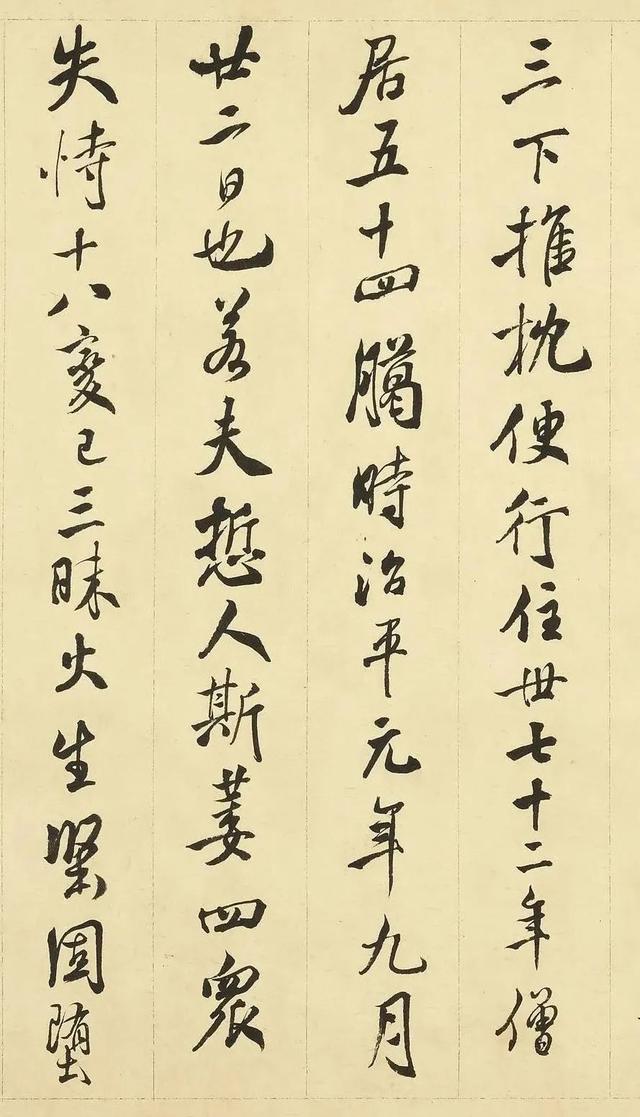 三下推枕便行住世七十二年僧
居五十四臈時治平元年九月
廿二日也若夫悊人斯萎四衆
失恃十八変已三昧火生堅固墮